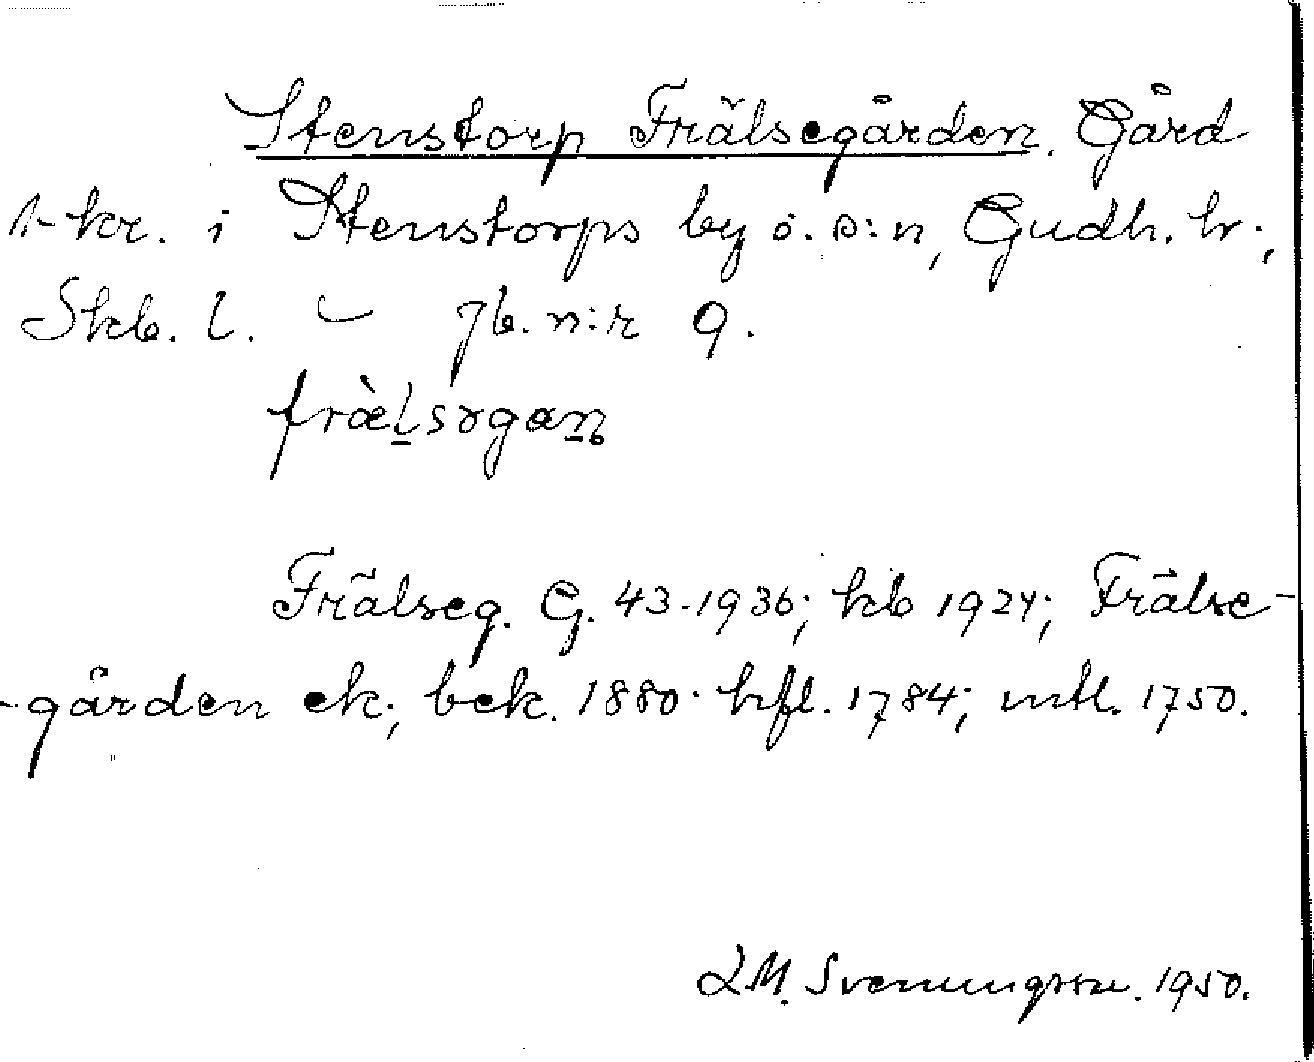 Stenstorp Frälsegården. Gård
1-kr. i Stenstorps by o. s:n, Gudh. hr.,
Skb. l. – Jb. n:r 9.
fràlsəgan
Frälseg. G. 43-1936; kb 1924; Frälse-
-gården ek.; bek. 1880. hfl. 1784; mtl. 1750.
L M. Svenungsson. 1950.